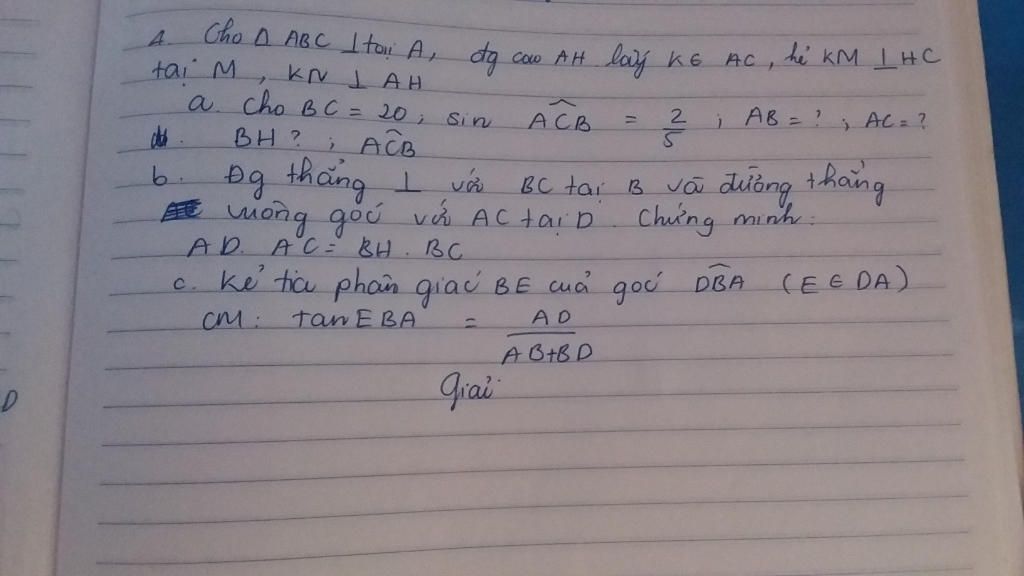 4. Cho Δ ABC ⊥ tại A, đg cao AH lấy K ∈ AC, kẻ KM ⊥ HC
tại M, KN ⊥ AH
a. Cho BC = 20, sin ACB = 2/5; AB = ?; AC = ?
BH ?; ACB
b. Đg thẳng ⊥ với BC tại B và đường thẳng
vuông góc với AC tại D. Chứng minh:
AD. AC = BH. BC
c. Kẻ tia phân giác BE của góc DBA (E ∈ DA)
CM: tan EBA = AD / AB+BD
Giải
D